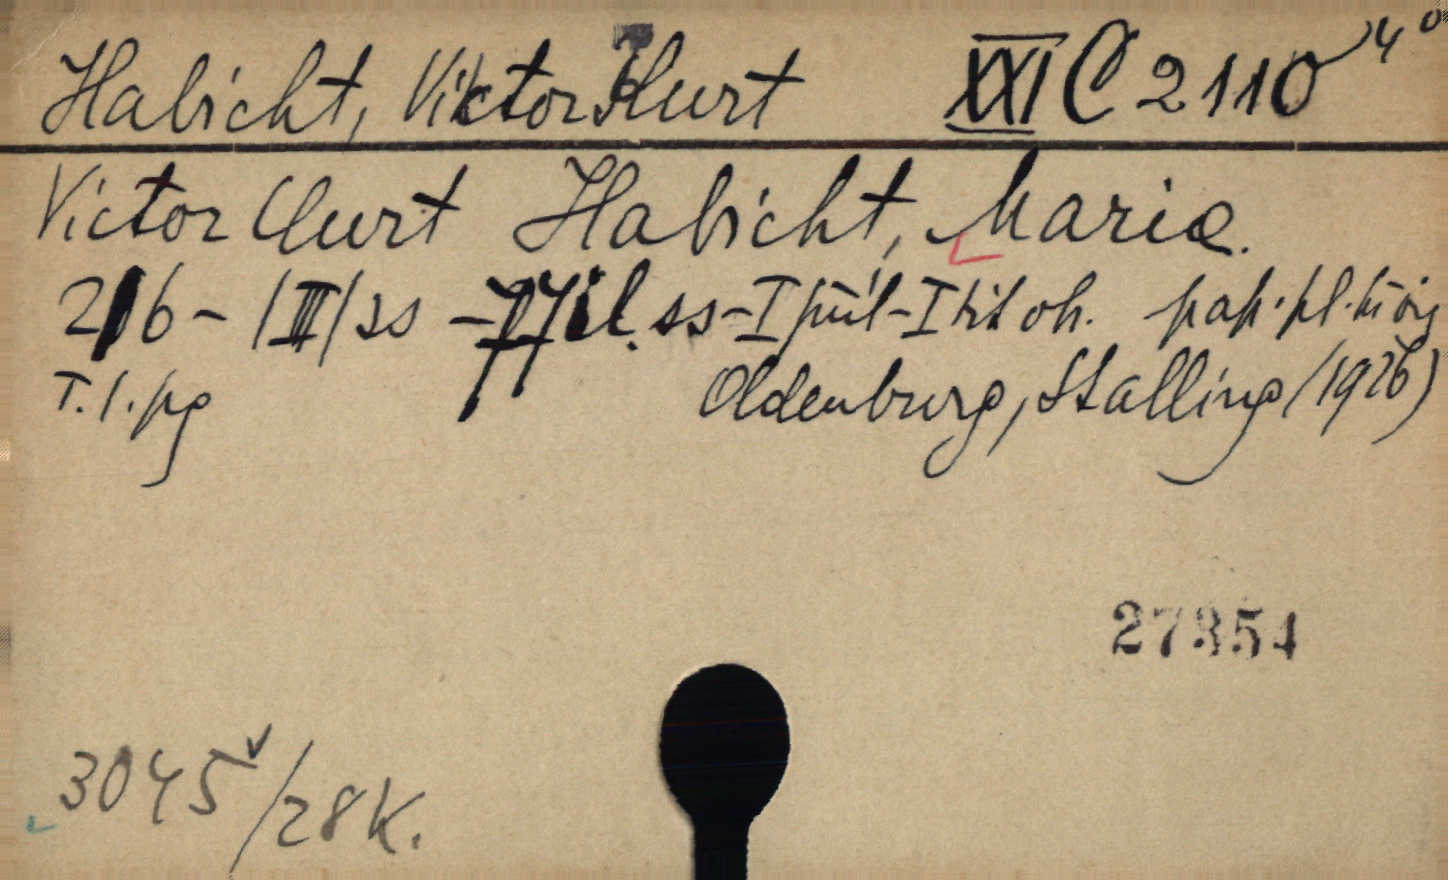 Habicht, Victor Kurt XXI C 2110 4°
Victor Curt Habicht, Maria.
216 - /III/ ss - 77 il. ss - I príl - I tit ob. pap. pl.
T. l. pg Oldenburg, Stalling /1926)
27354
3045/28K.